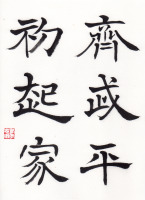 齊武平
初起家